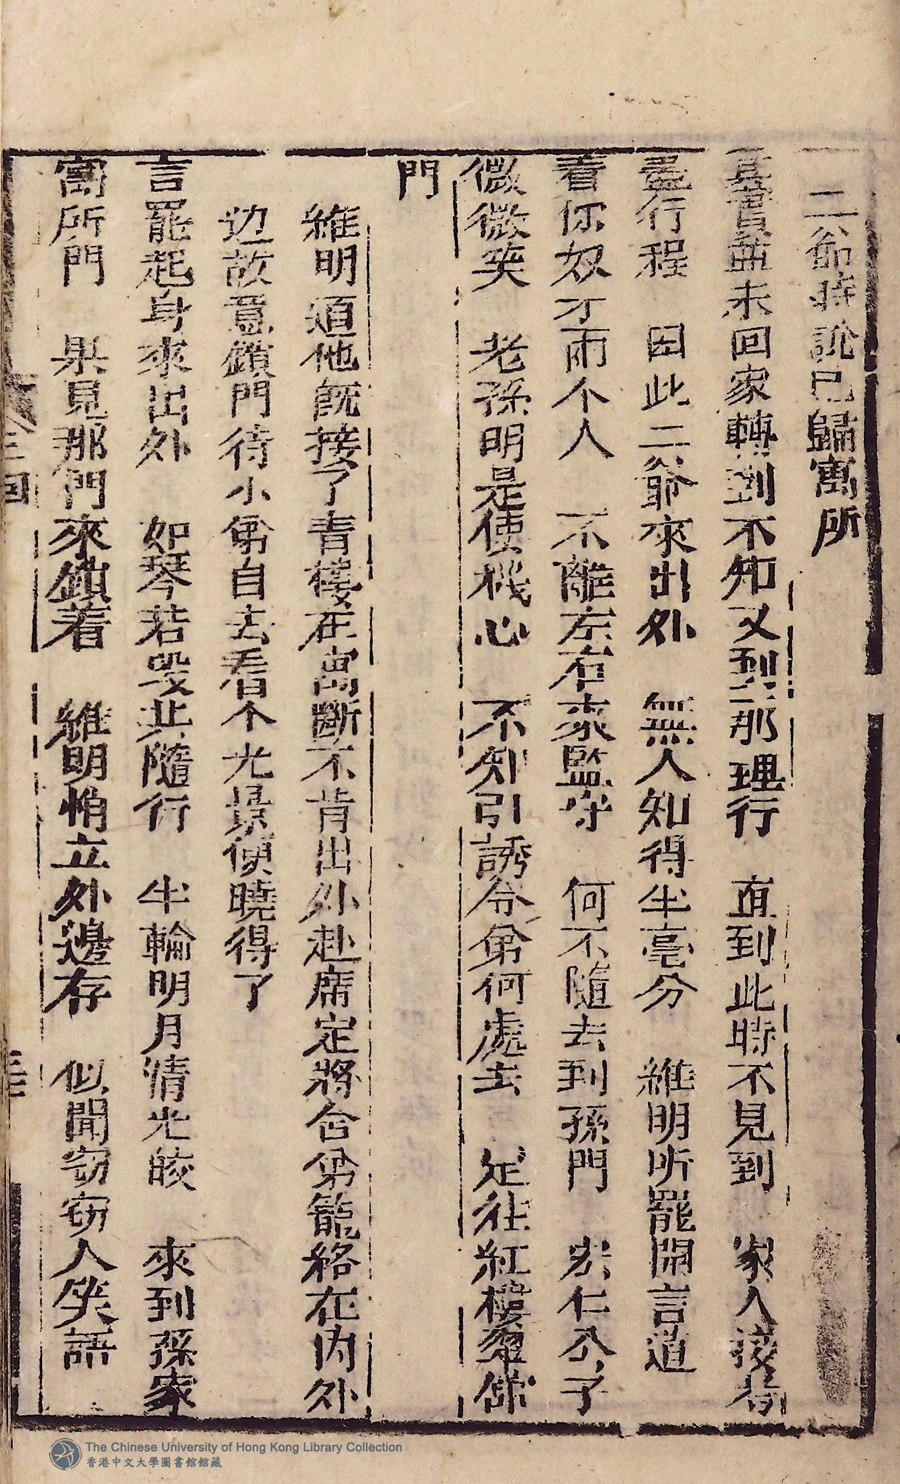 二爺時說已歸寓所
其實並未回家轉 到不知又到那里行 直到此時不見到 家人接着
壹行程 因此二爺來出外 無人知得半毫分 維明听罷開言道
看你奴才兩个人 不離左右來監守 何不隨去到孫門 宏仁公子
微微笑 老孫明是使機心 不知引誘令弟何處去 定往紅樓翠館
門
維明道他既接了青樓在寓斷不肯出外赴席定將令弟籠絡在內外
边故意鎖門待小弟自去看个光景便曉得了
言罷起身來出外 如琴若蕟共隨行 半輪明月清光皎 來到孫家
寓所門 果見那門來鎖着 維明悄立外邊存 似聞窃窃人笑語
三回
The Chinese University of Hong Kong Library Collection
香港中文大學圖書館館藏